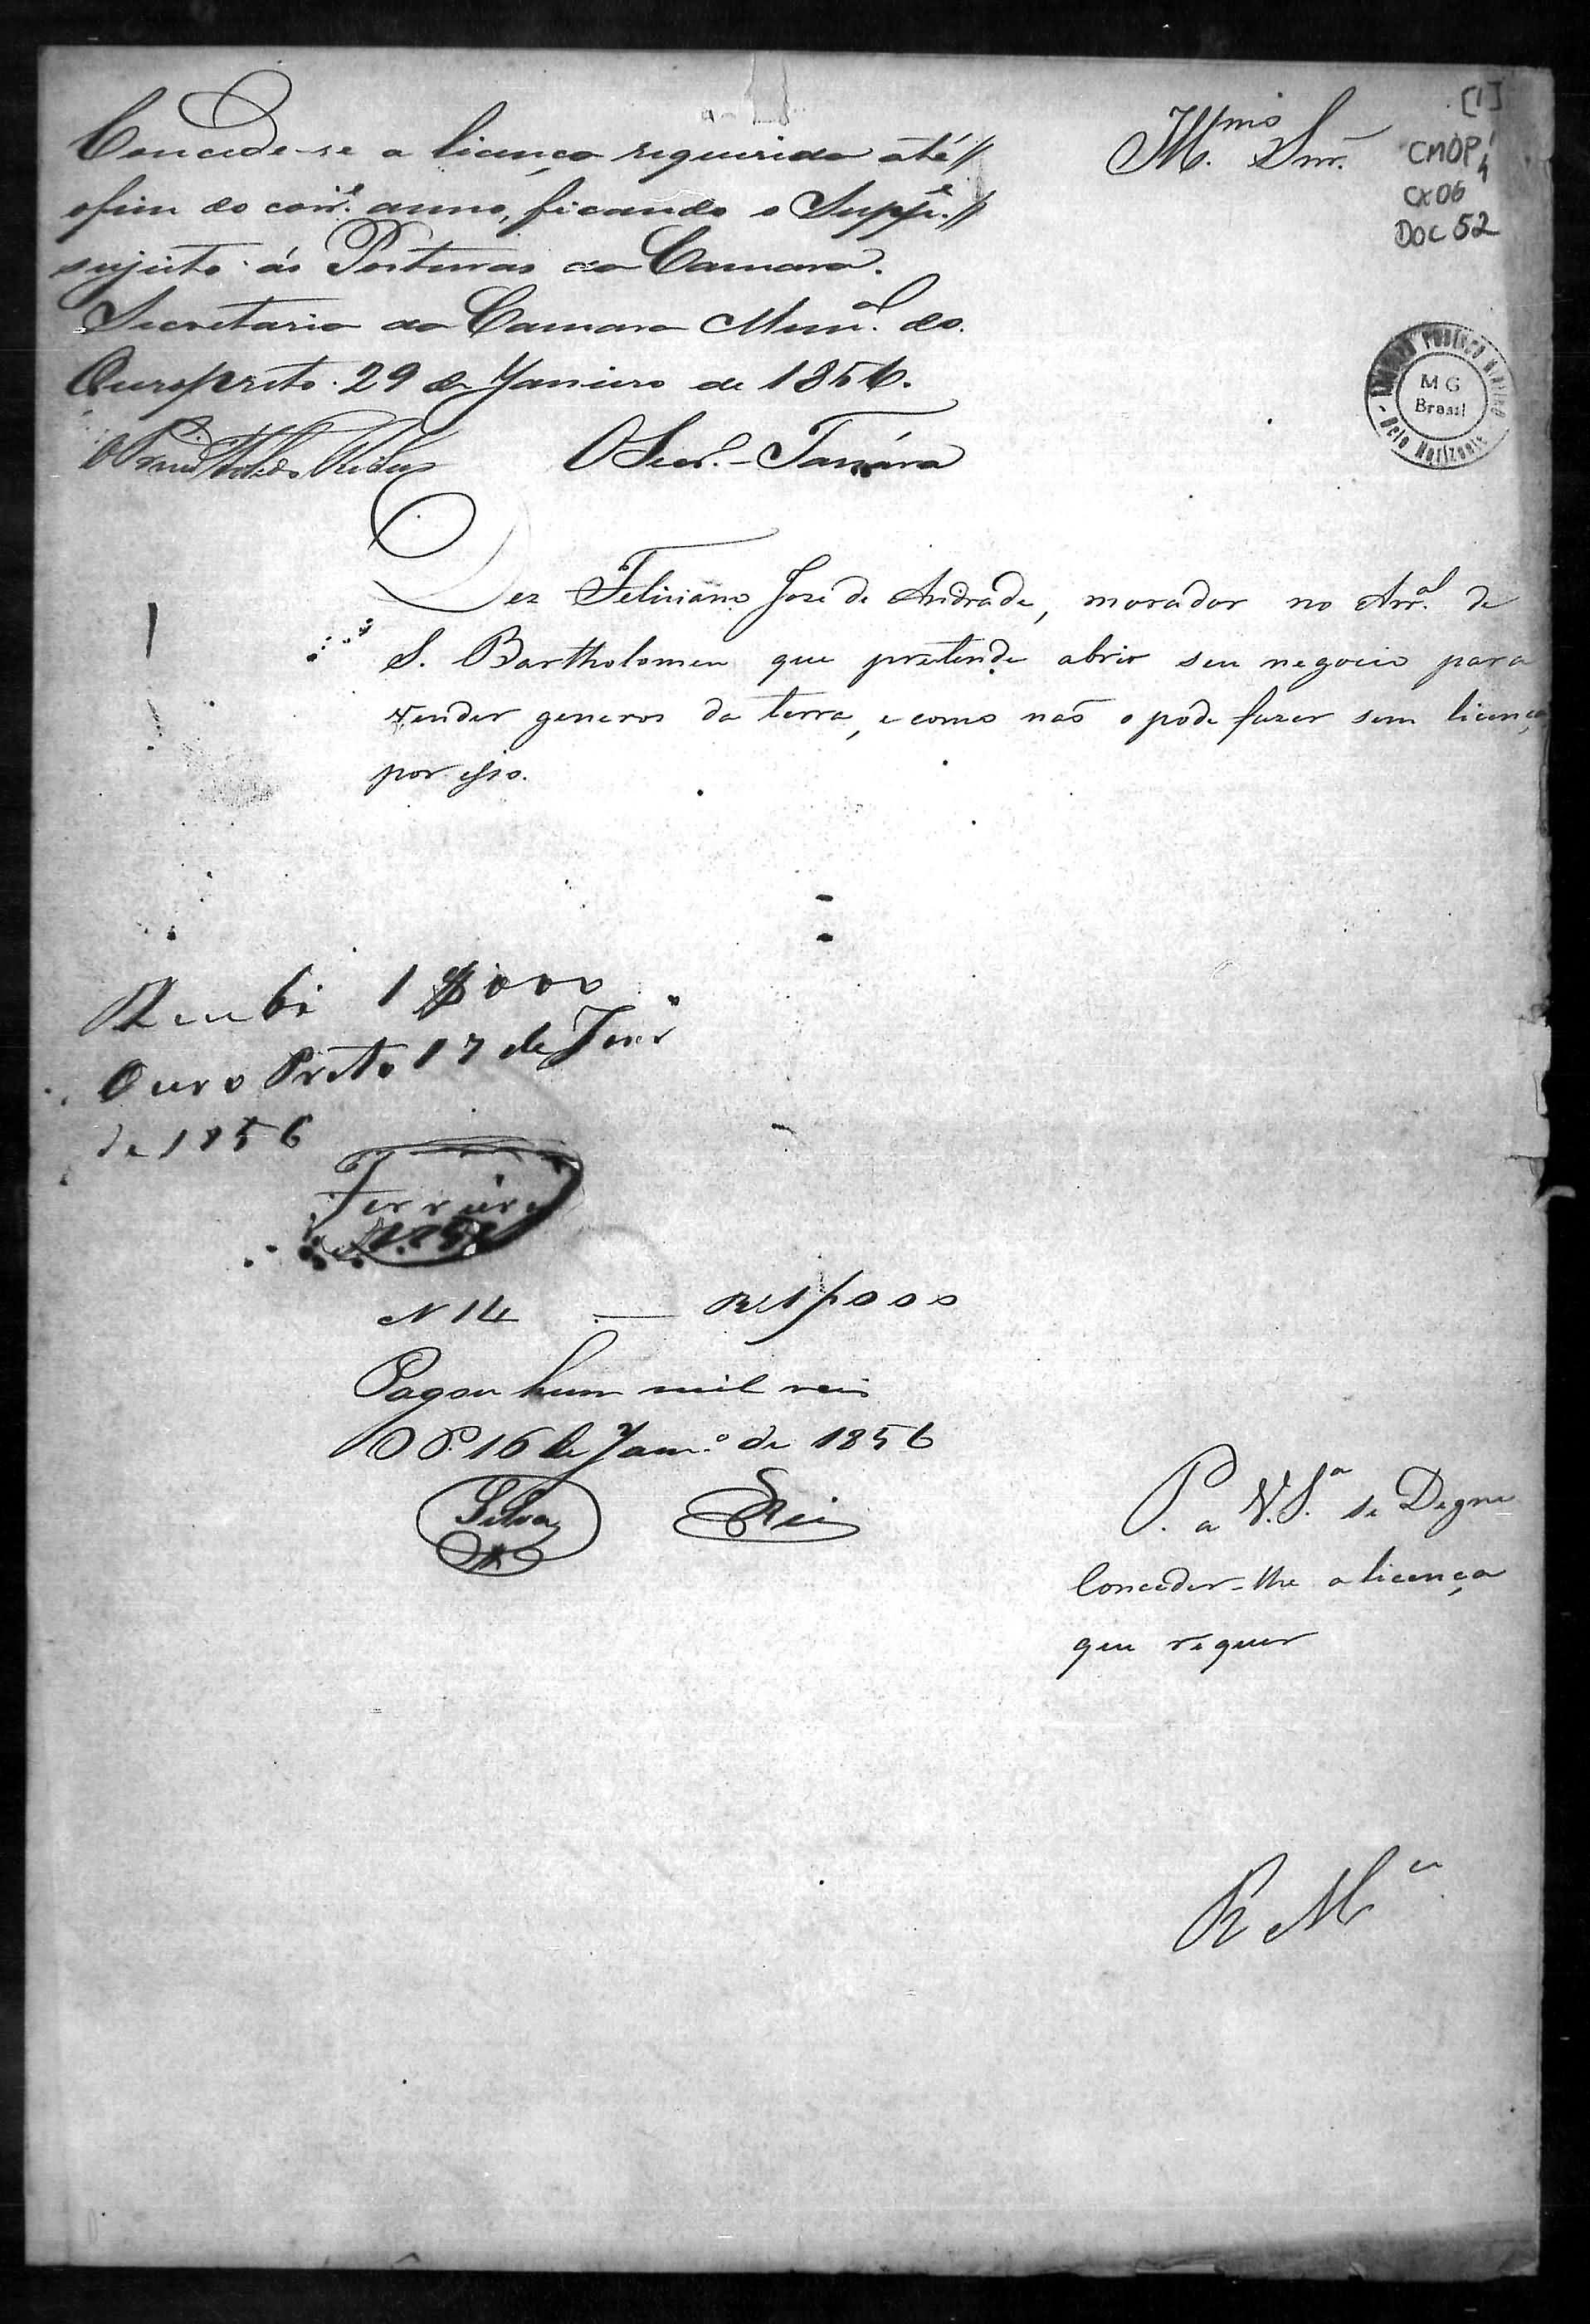 [1]
CMOP
CX 06
DOC 52
Illmo. Snr.
Concede-se a licença requerida até
o fim do corre. anno, ficando o Suppe.
sujeito ás Posturas da Camara.
Secretaria da Camara Munal. do
Ouro preto 29 de Janeiro de 1856.
O Secro.
ARQUIVO PUBLICO MINEIRO
MG
Brasil
Belo Horizonte
Diz Feliciano José de Andrade, morador no Arral. de
S. Bartholomeu que pretende abrir seu negocio para
vender generos da terra, e como naõ o pode fazer sem licença
por isso.
Recebi 1$000
Ouro Preto 17 de Janr
de 1856
Ferreira
N 14 — Rs 1$000
Pagou hum mil reis
O P. 16 de Janro. de 1856
Silva Reis
P. a V. S.a se Digne
Conceder-lhe a licença
que requer
R Mce